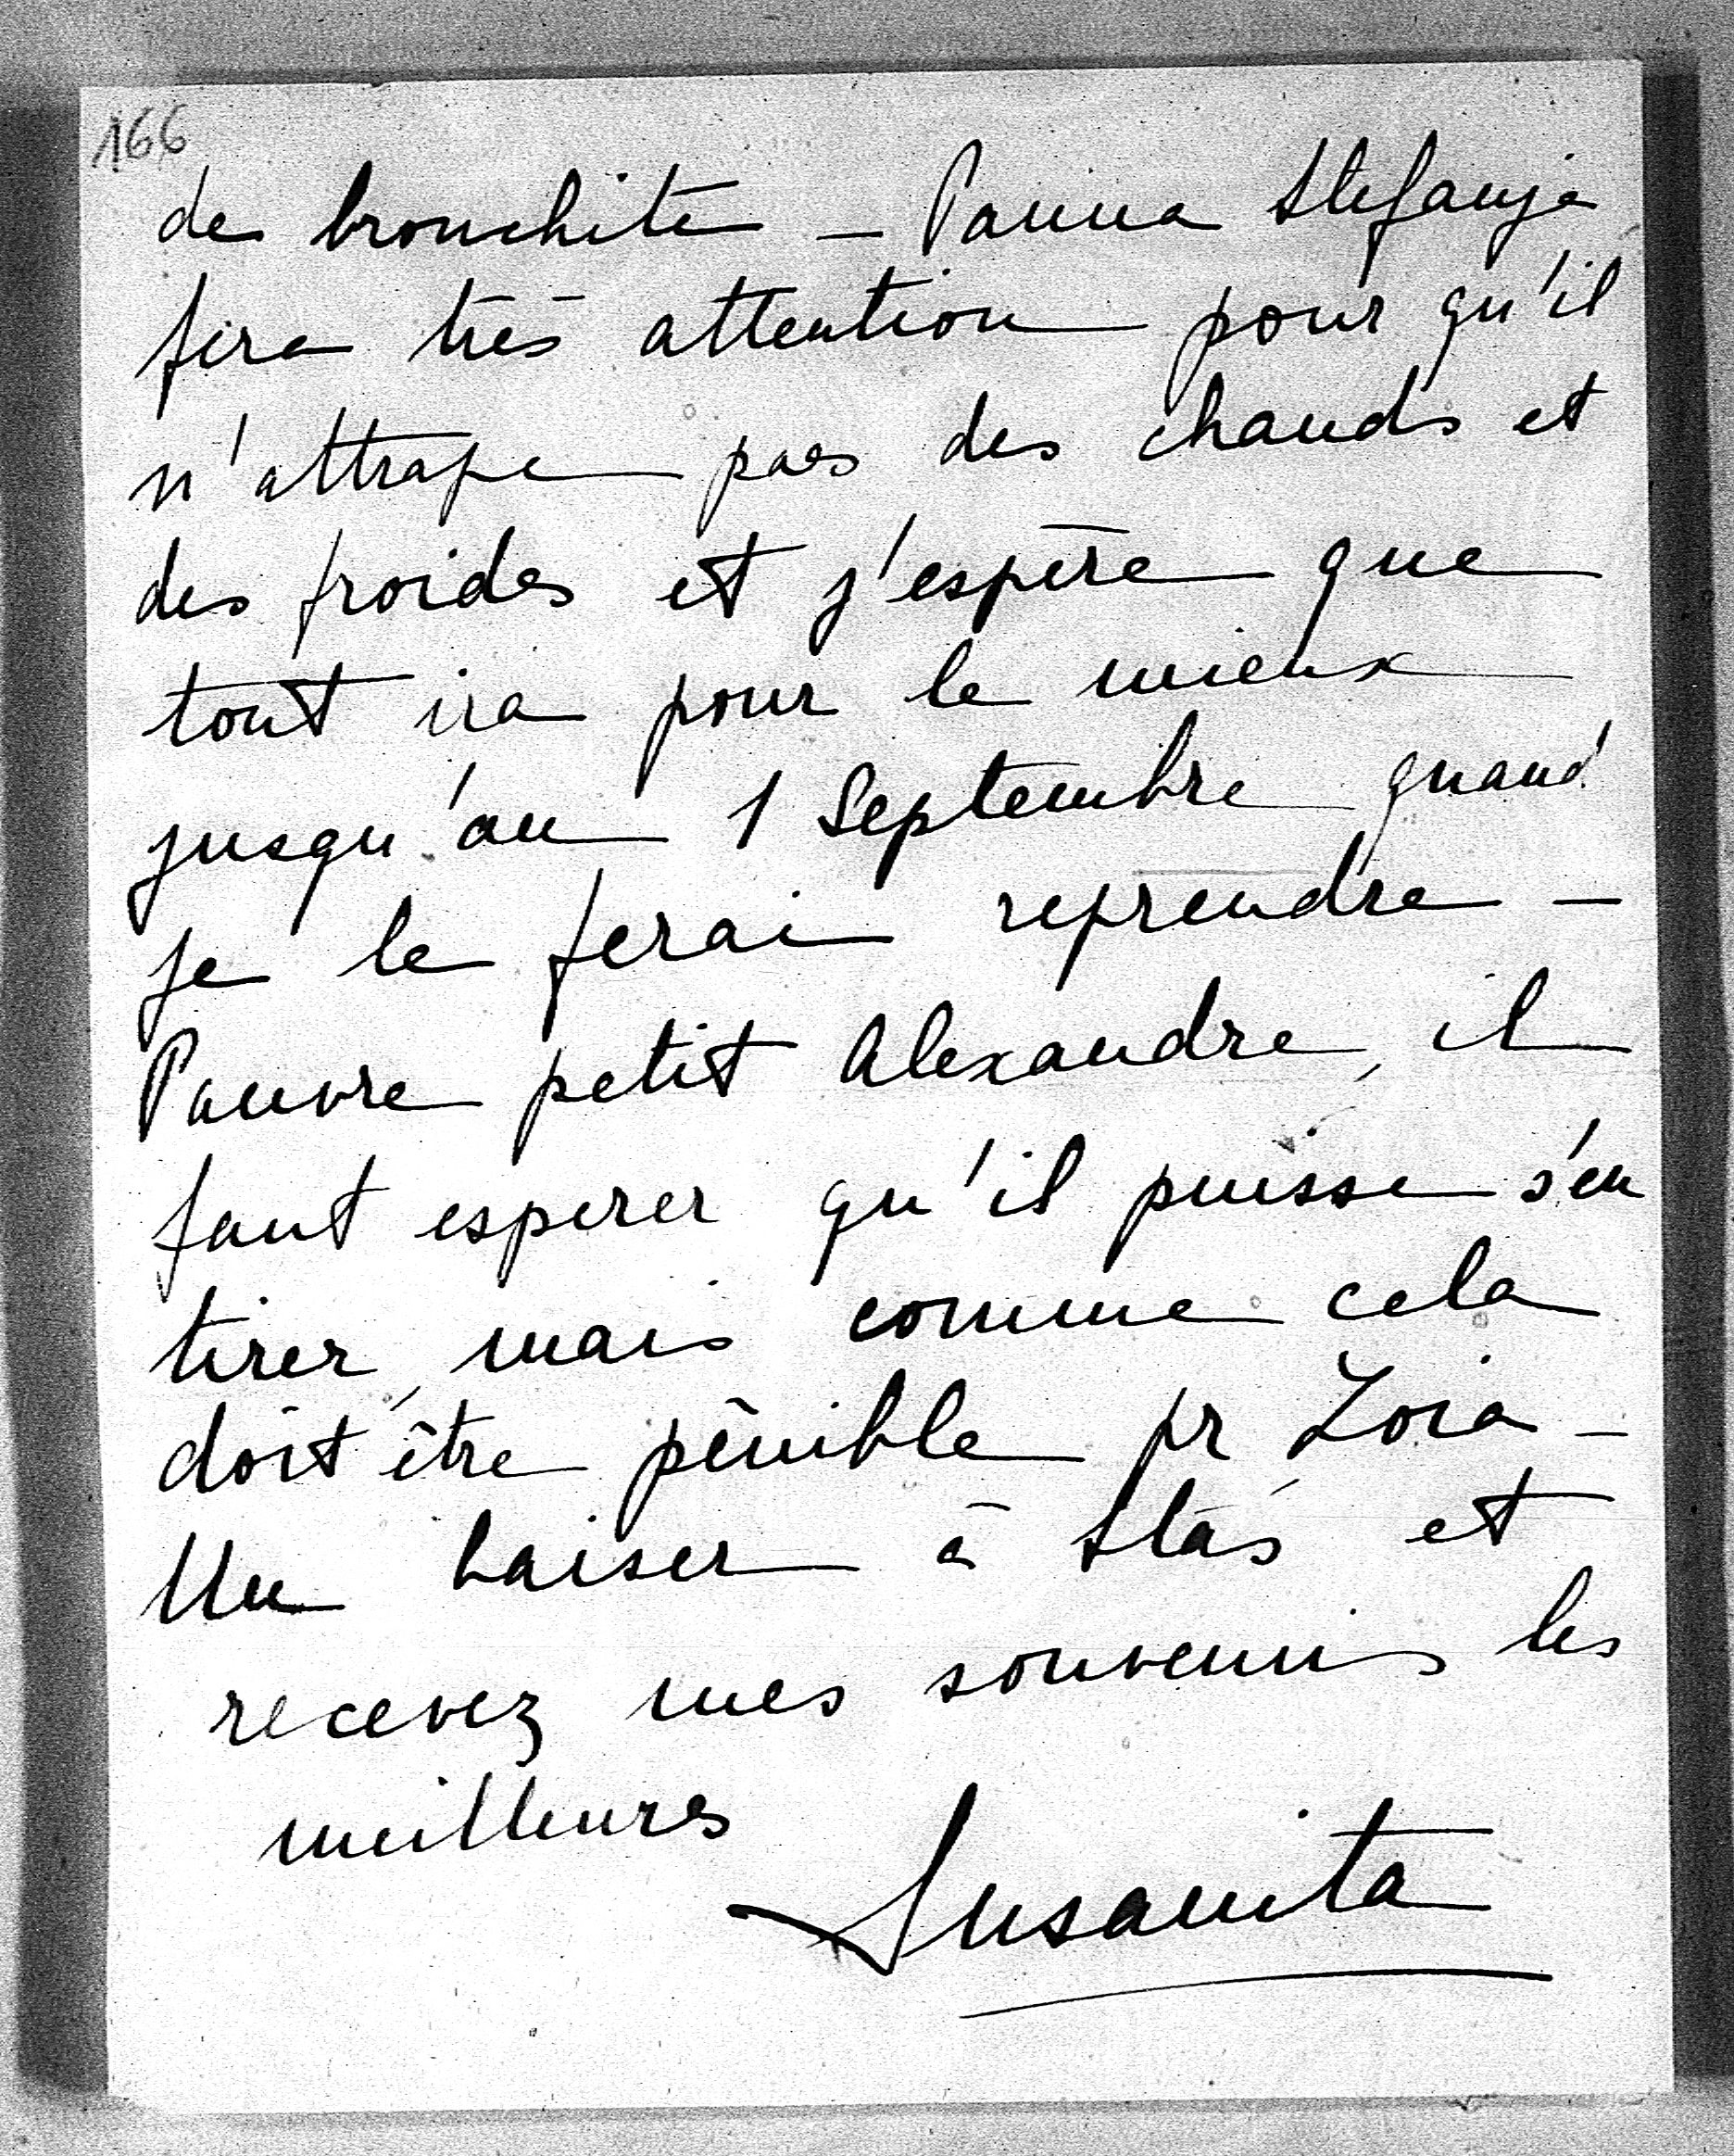 166
de bronchite – Panna Stefanja
fera très attention pour qu'il
n'attrape pas des chauds et
des froides et j'espère que
tout ira pour le mieux
jusqu'au 1 Septembre quand
je le ferai reprendre –
Pauvre petit Alexandre, il
faut esperer qu'il puisse s'en
tirer, mais comme cela
doit être pénible pr Zoia –
Un baiser à Staś et
recevez mes souvenirs les
meilleures
Susanita